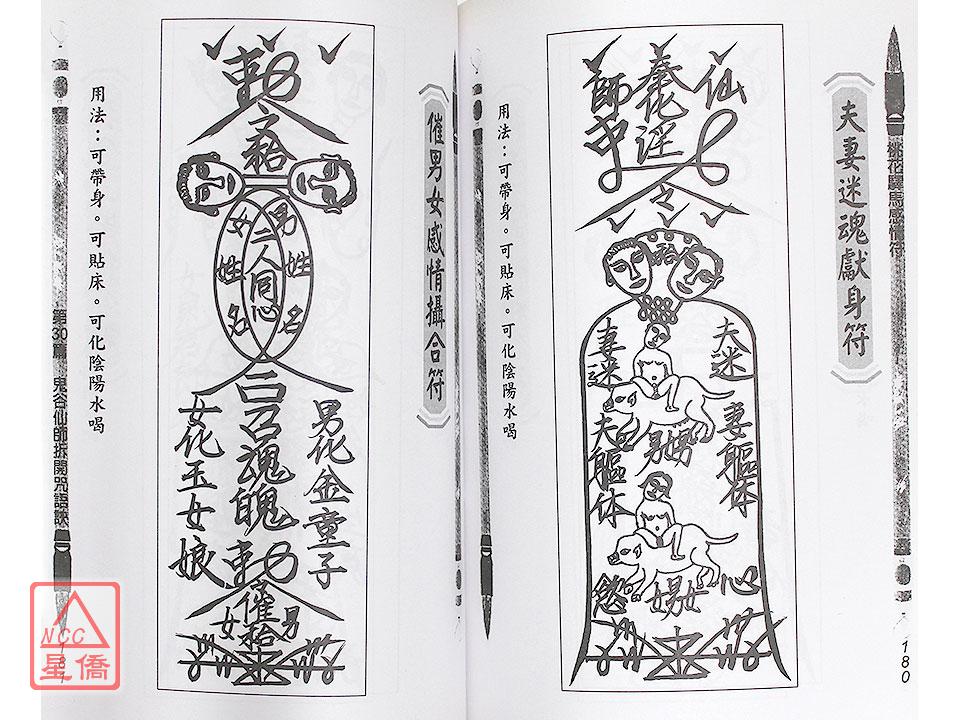 桃花驛馬感情符
夫妻迷魂獻身符
仙
師
淫
令
夫迷
妻軀体
妻迷
夫軀体
心
慾
用法：可帶身。可貼床。可化陰陽水喝
180
催男女感情攝合符
敕
令
男姓名
二人同心
女姓名
合
魂魄
男化金童子
女化玉女娘
敕
催
男
女
用法：可帶身。可貼床。可化陰陽水喝
第30篇 鬼谷仙師拆開咒語訣
181
NCC
星僑